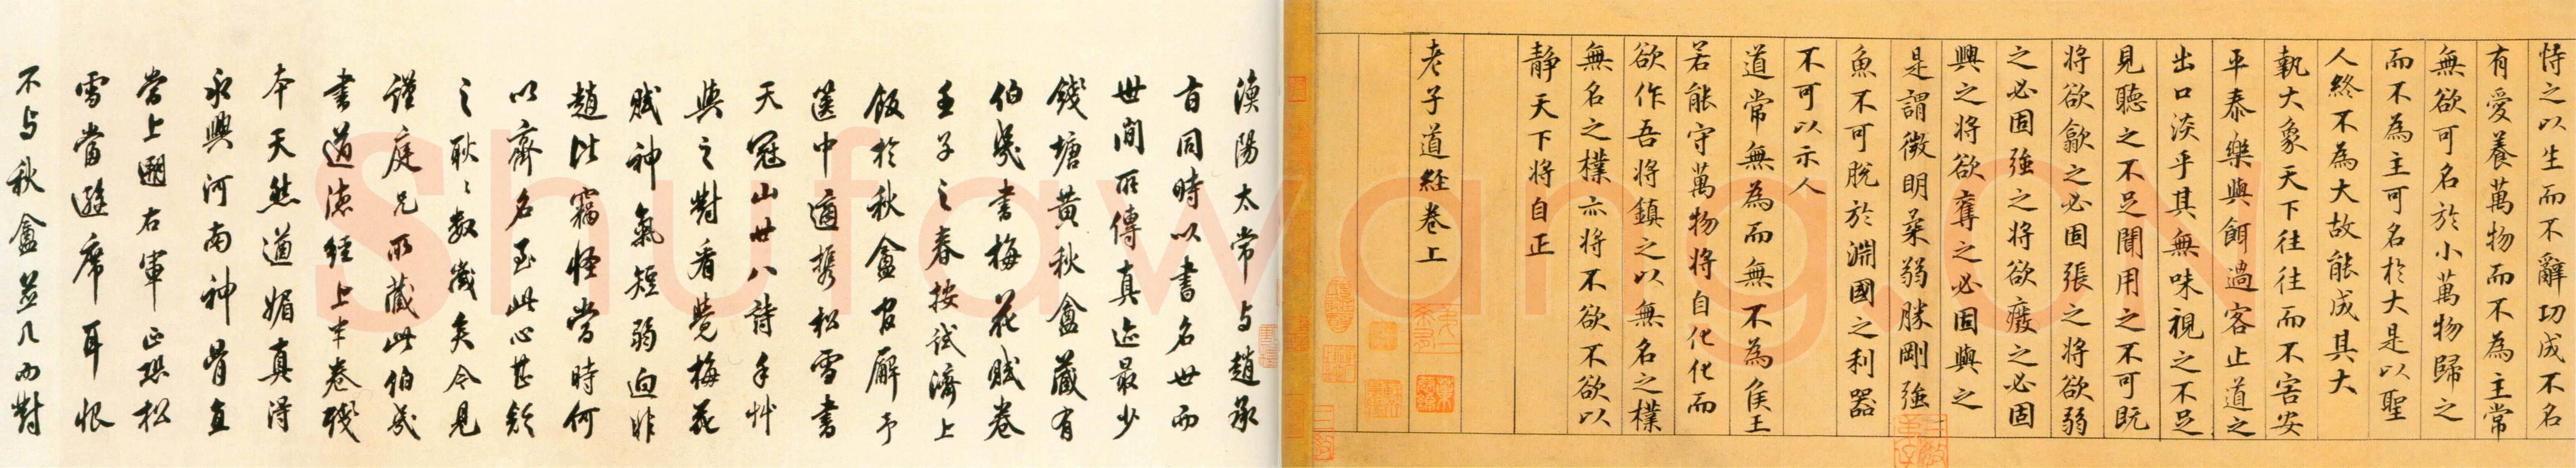 恃之以生而不辭功成不名
有愛養萬物而不為主常
無欲可名於小萬物歸之
而不為主可名於大是以聖
人終不為大故能成其大
執大象天下往往而不害安
平泰樂與餌過客止道之
出口淡乎其無味視之不足
見聽之不足聞用之不可既
將欲歙之必固張之將欲弱
之必固強之將欲廢之必固
興之將欲奪之必固與之
是謂微明柔弱勝剛強
魚不可脫於淵國之利器
不可以示人
道常無為而無不為侯王
若能守萬物將自化化而
欲作吾將鎮之以無名之樸
無名之樸亦將不欲不欲以
靜天下將自正
老子道經卷上
漁陽太常与趙承
旨同時以書名世而
世間所傳真迹最少
錢塘黃秋盦藏有
伯幾書梅花賦卷
壬子之春按試濟上
飯於秋盦官廨予
篋中適攜松雪書
天冠山廿八詩手艸
與之對看覺梅花
賦神氣短弱迥非
趙比竊怪當時何
以齊名至此心甚歉
之耿〻數歲矣今見
謹庭兄所藏此伯幾
書道德經上半卷殘
本天然遒媚真得
永興河南神骨直
當上溯右軍正恐松
雪當避席耳恨
不与秋盦並几而對
Shufawang.CN